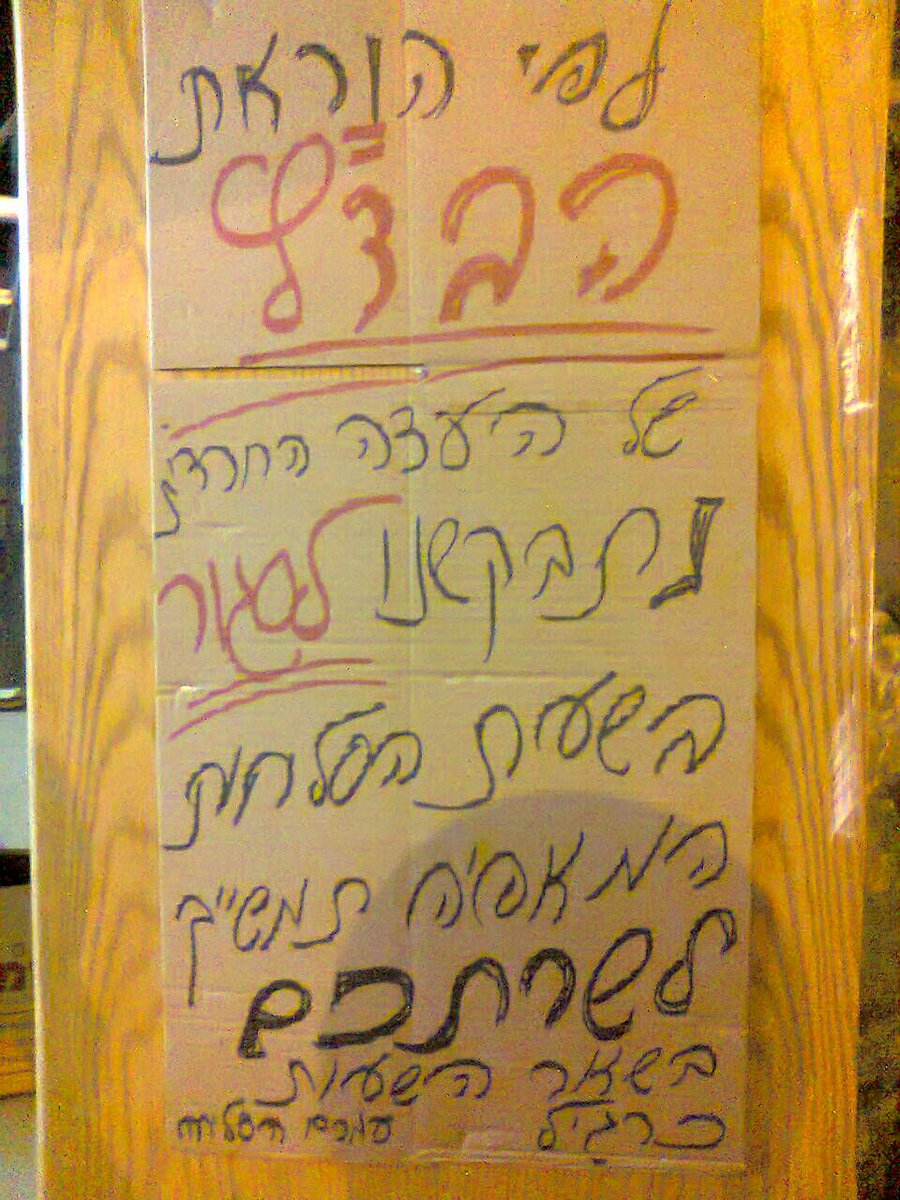 לפי הוראת
הבד״ץ
של העדה החרדית
נתבקשנו לסגור
בשעת הסליחות
המאפיה תמשיך
לשרתכם
בשאר השעות
כרגיל עמכם הסליחה